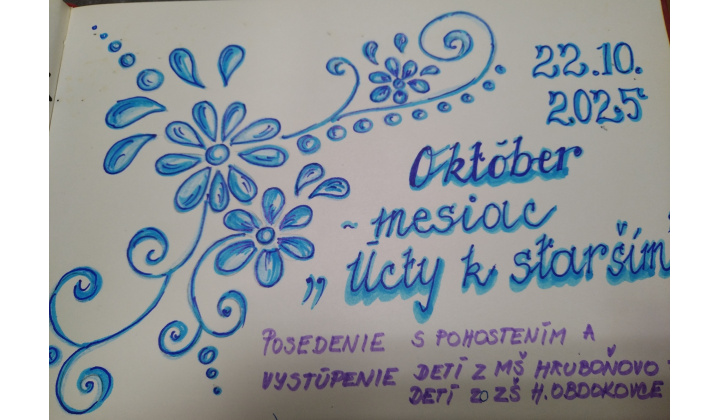 22.10.
2025
Október
- mesiac
„Úcty k starším
POSEDENIE S POHOSTENÍM A
VYSTÚPENIE DETÍ Z MŠ HRUBOŇOVO
DETÍ ZO ZŠ H. OBDOKOVCE